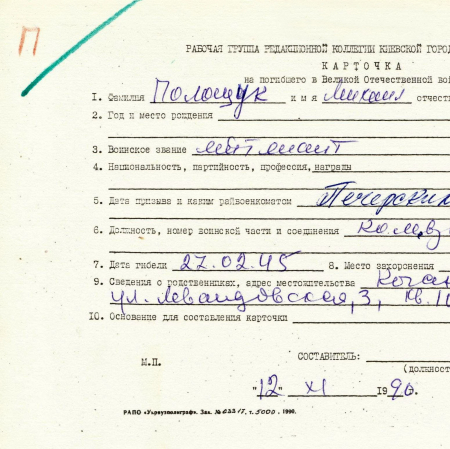 П
РАБОЧАЯ ГРУППА РЕДАКЦИОННОЙ КОЛЛЕГИИ КИЕВСКОЙ ГОРОД
КАРТОЧКА
на погибшего в Великой Отечественной вой
1. Фамилия Полощук имя Михаил отчест
2. Год и место рождения
3. Воинское звание лейтенант
4. Национальность, партийность, профессия, награды
5. Дата призыва и каким райвоенкоматом Печерским
6. Должность, номер воинской части и соединения ком.вз
7. Дата гибели 27.02.45 8. Место захоронения
9. Сведения о родственниках, адрес местожительства
ул. Левандовская, 3, кв.
10. Основание для составления карточки
СОСТАВИТЕЛЬ:
(должност
М.П.
"12" XI 1990.
РАПО «Укрвузполиграф». Зак. № 0221Т, т. 5000. 1990.